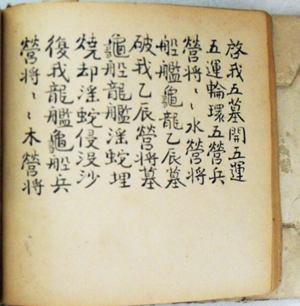 啓我五墓開五運
五運輪環五營兵
營將〻水營將
船艦龜龍乙辰墓
破我乙辰營將墓
龜船龍艦淫蛇埋
燒却淫蛇侵没沙
復我龍艦龜船兵
營將〻木營將